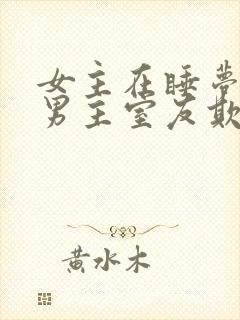 女主在睡夢
男主室友欺
黃水木